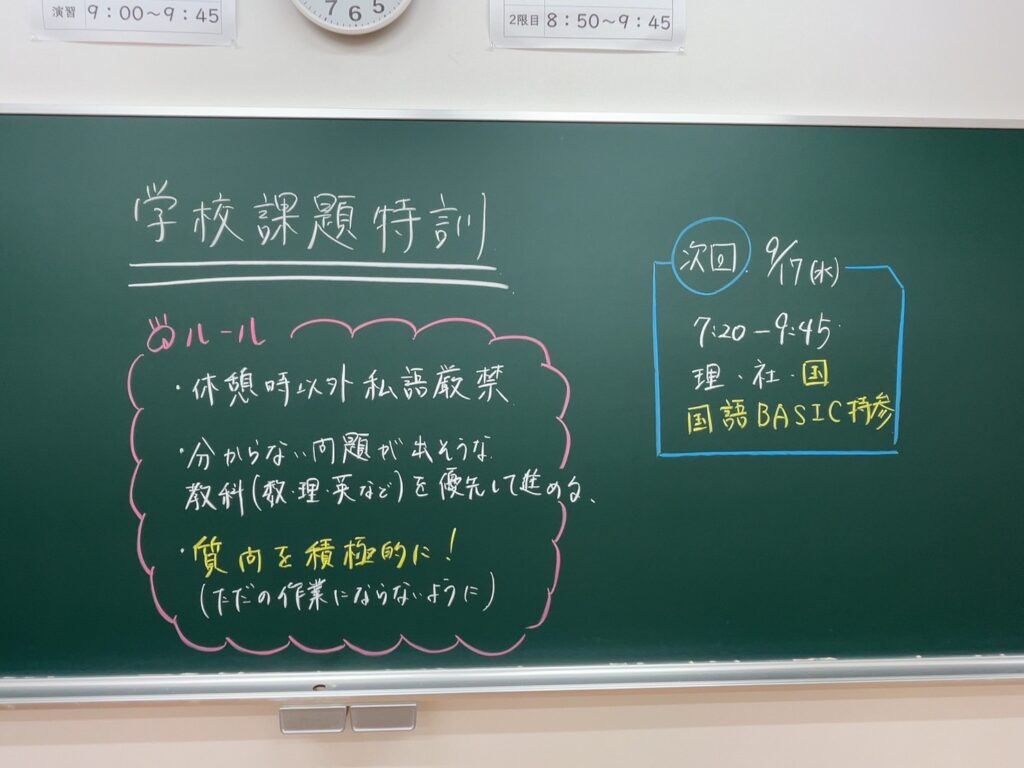 演習 9:00～9:45
7 6 5
2限目 8:50～9:45
学校課題特訓
ルール
・休憩時以外私語厳禁
・分からない問題が出そうな
教科(数・理・英など)を優先して進める、
・質問を積極的に!
(ただの作業にならないように)
次回 9/17(水)
7:20-9:45
理・社・国
国語BASIC持参